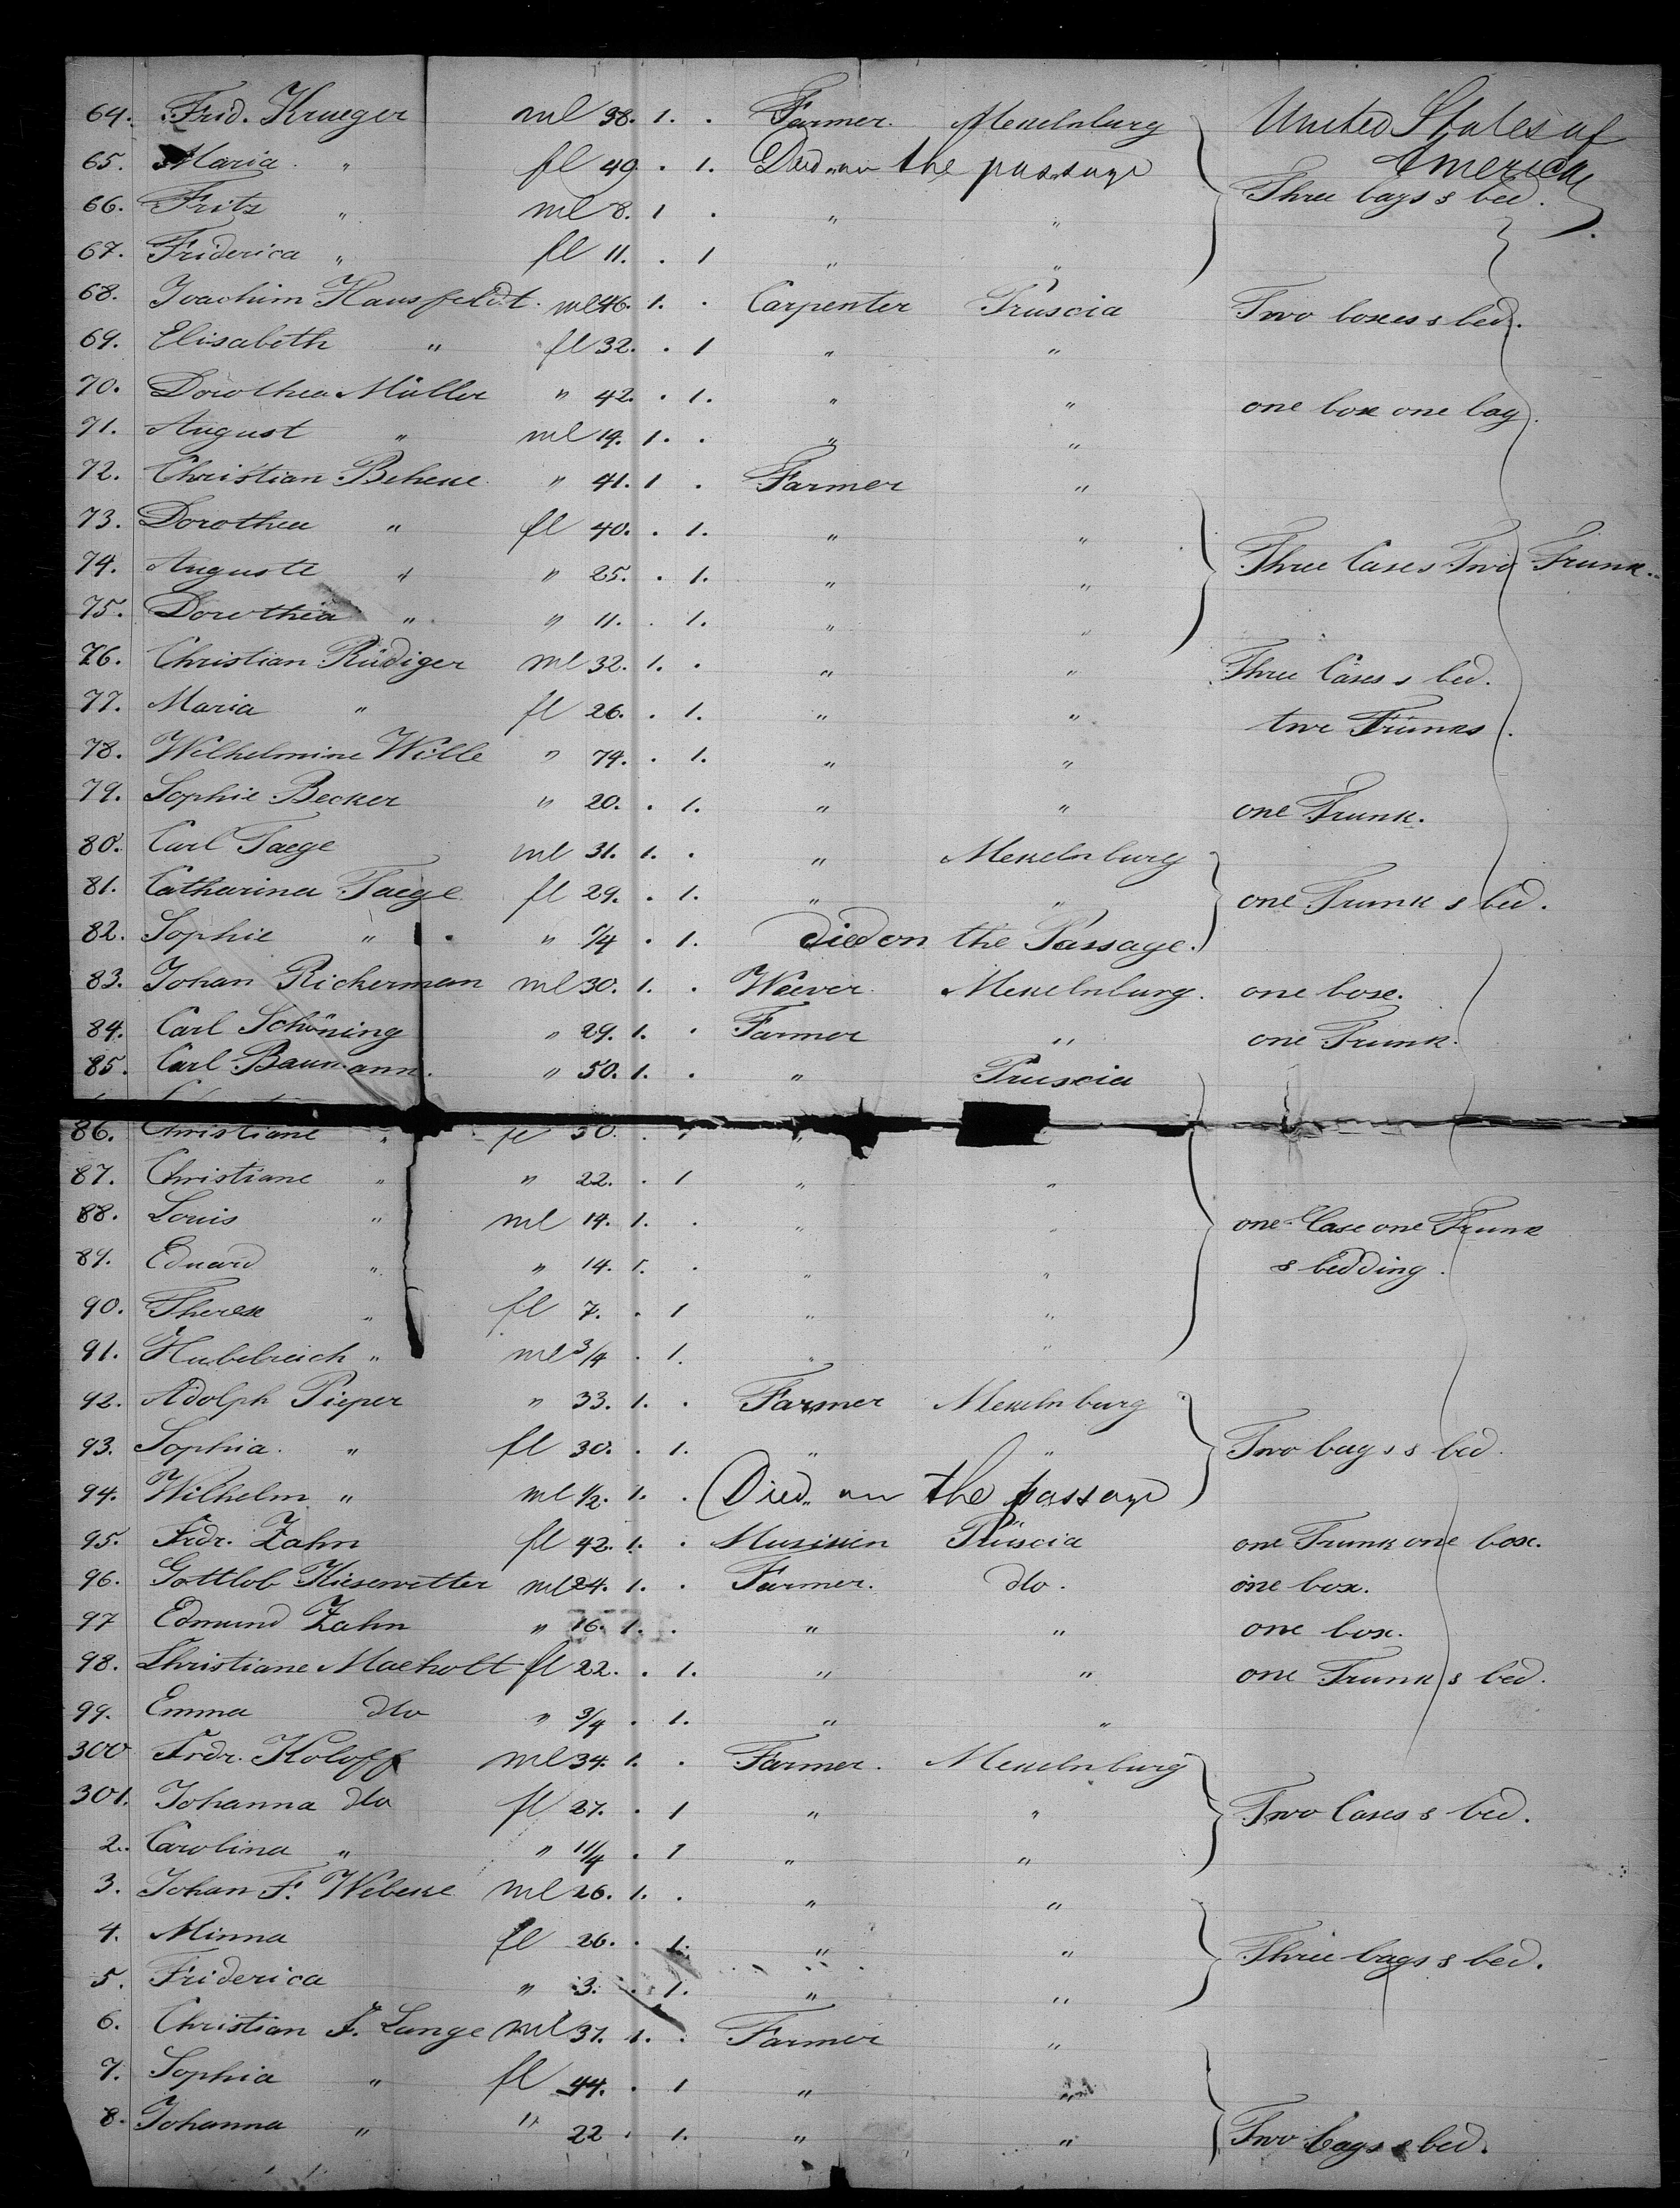 64. Frid. Krueger ml 38. 1. . Farmer. Mekelnburg United States of
65. Maria " fl 49. . 1. Died on the passage America
66. Fritz " ml 8. 1 . " " Three bags & bed.
67. Friderica " fl 11. . 1 " "
68. Joachim Hausfeldt. ml 46. 1. . Carpenter Pruscia Two boxes & bed.
69. Elisabeth " fl 32. . 1 " "
70. Dorothea Müller " 42. . 1. " " one box one bag.
71. August " ml 19. 1. . " "
72. Christian Beheke " 41. 1 . Farmer "
73. Dorothea " fl 40. . 1. " "
74. Auguste " " 25. . 1. " " Three Cases Two Trunk.
75. Dorothea " " 11. . 1. " "
76. Christian Rüdiger ml 32. 1. . " " Three Cases & bed.
77. Maria " fl 26. . 1. " " two Trunks.
78. Wilhelmine Wille " 74. . 1. " "
79. Sophie Becker " 20. . 1. " " one Trunk.
80. Carl Taege ml 31. 1. . " Mekelnburg
81. Catharina Taege fl 29. . 1. " " one Trunk & bed.
82. Sophie " " /4 . 1. Died on the Passage.
83. Johan Rickerman ml 30. 1. . Weever Mekelnburg. one boxe.
84. Carl Schöning " 29. 1. . Farmer " one Trunk.
85. Carl Baumann. " 50. 1. . " Pruscia
86. Christiane " fl 50. . "
87. Christiane " " 22. . 1 " "
88. Louis " ml 14. 1. . " " one Case one Trunk
89. Eduard " " 14. 1. . " " & bedding.
90. Therese " fl 7. . 1 " "
91. " ml 3/4 . 1. " "
92. Adolph Pieper " 33. 1. . Farmer Mekelnburg
93. Sophia. " fl 30. . 1. " " Two bags & bed.
94. Wilhelm " ml 1/2. 1. . Died on the passage
95. Frdr. Zahn fl 42. 1. . Musiken Pruscia one Trunk one boxe.
96. Gottlob Kiesewetter ml 24. 1. . Farmer. dto. one box.
97 Edmund Zahn " 16. 1. . " " one box.
98. Christiane Maeholt fl 22. . 1. " " one Trunk & bed.
99. Emma dto " 3/4 . 1. " "
300 Frdr. Koloff ml 34. 1. . Farmer. Mekelnburg
301. Johanna dto fl 27. . 1 " " Two Cases & bed.
2. Carolina " " 11/4 . 1 " "
3. Johan F. Webeke ml 26. 1. . " "
4. Minna fl 26. . 1. " " Three bags & bed.
5. Friderica " 3. . 1. " "
6. Christian J. Lange ml 37. 1. . Farmer "
7. Sophia " fl 44. . 1 " "
8. Johanna " " 22 . 1. " " Two bags & bed.